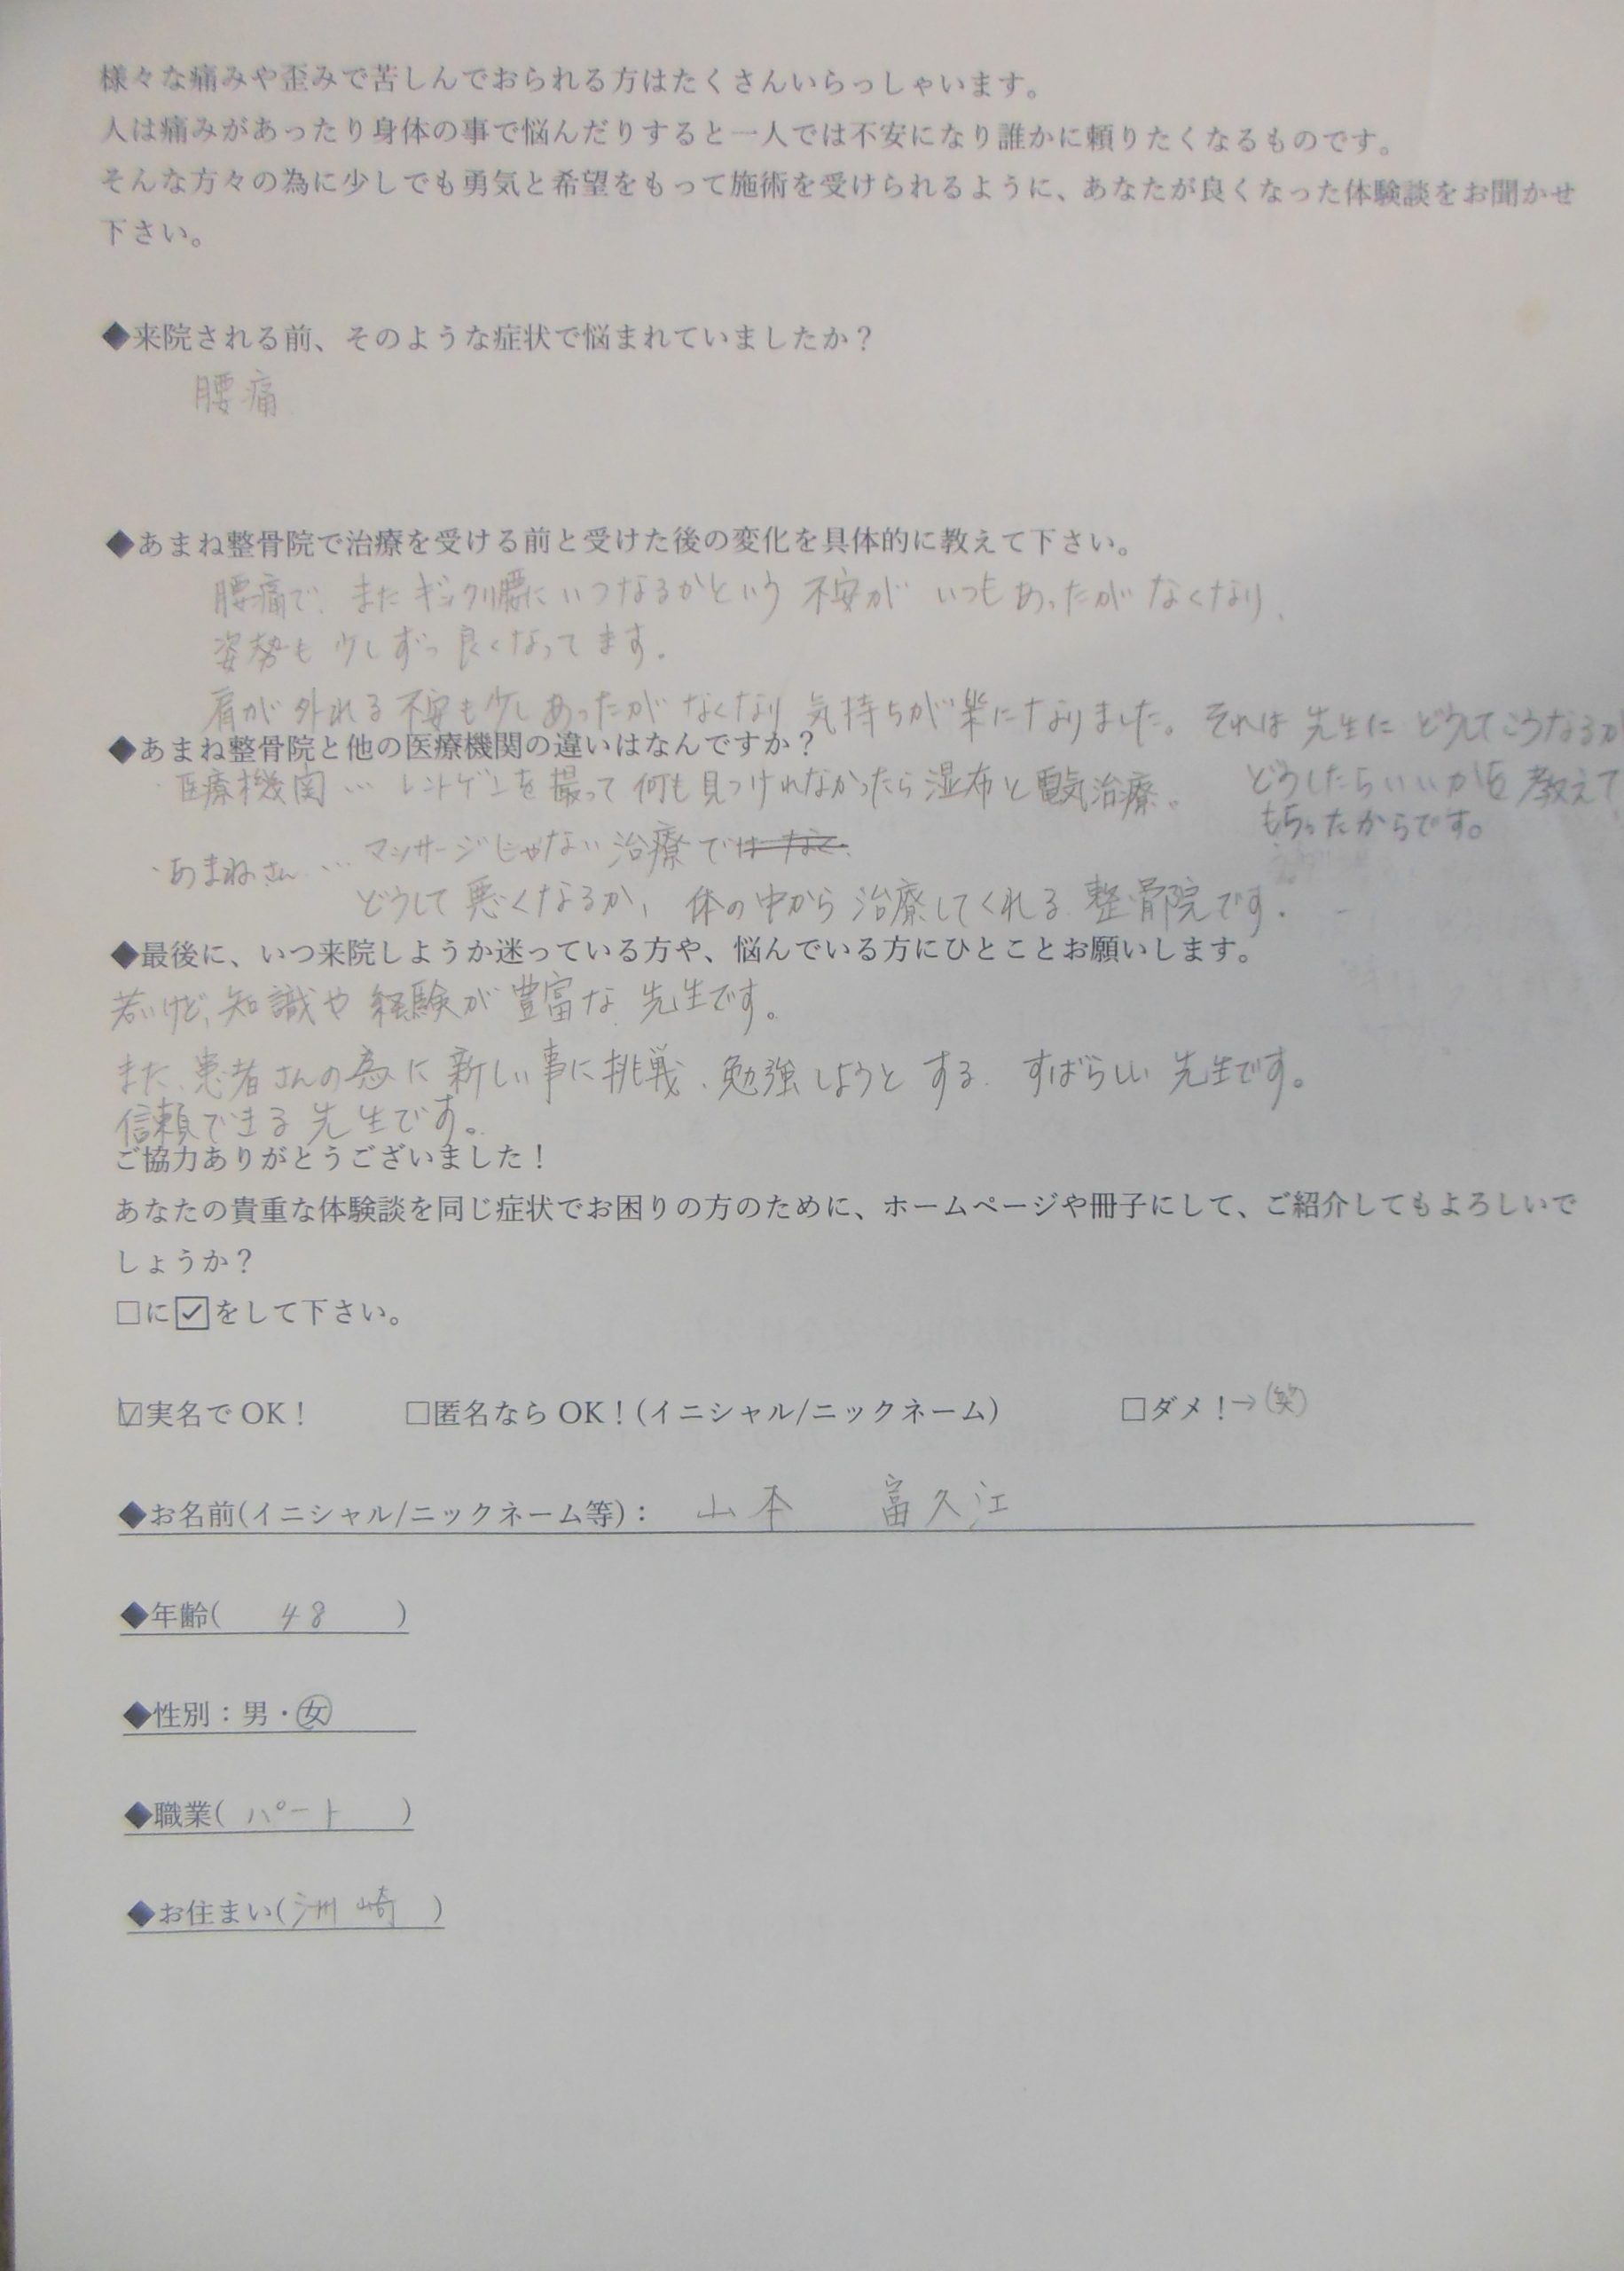 様々な痛みや歪みで苦しんでおられる方はたくさんいらっしゃいます。
人は痛みがあったり身体の事で悩んだりすると一人では不安になり誰かに頼りたくなるものです。
そんな方々の為に少しでも勇気と希望をもって施術を受けられるように、あなたが良くなった体験談をお聞かせ
下さい。
◆来院される前、そのような症状で悩まれていましたか？
腰痛
◆あまね整骨院で治療を受ける前と受けた後の変化を具体的に教えて下さい。
腰痛で、またギックリ腰にいつなるかという不安がいつもあったがなくなり、
姿勢も少しずつ良くなってます。
肩が外れる不安も少しあったがなくなり気持ちが楽になりました。それは先生にどうしてこうなるか
どうしたらいいかを教えて
もらったからです。
◆あまね整骨院と他の医療機関の違いはなんですか？
・医療機関… レントゲンを撮って何も見つけれなかったら湿布と電気治療。
・あまねさん… マッサージじゃない治療では なく
どうして悪くなるか、体の中から治療してくれる整骨院です。
◆最後に、いつ来院しようか迷っている方や、悩んでいる方にひとことお願いします。
若いけど、知識や経験が豊富な先生です。
また、患者さんの為に新しい事に挑戦、勉強しようとする すばらしい先生です。
信頼できる先生です。
ご協力ありがとうございました！
あなたの貴重な体験談を同じ症状でお困りの方のために、ホームページや冊子にして、ご紹介してもよろしいで
しょうか？
□に☑をして下さい。
☑実名でOK！ □匿名ならOK！(イニシャル/ニックネーム) □ダメ！→(笑)
◆お名前(イニシャル/ニックネーム等)： 山本 富久江
◆年齢( 48 )
◆性別：男・女
◆職業( パート )
◆お住まい(洲崎 )